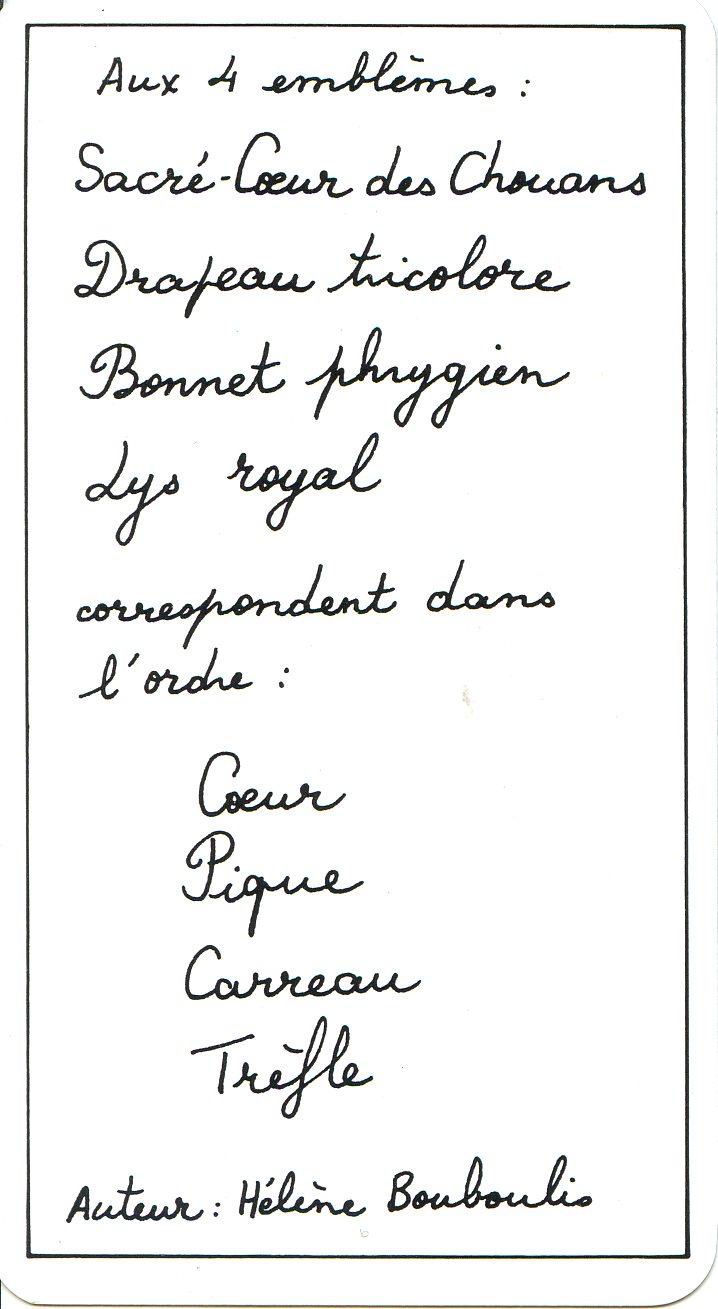 Aux 4 emblèmes :
Sacré-Cœur des Chouans
Drapeau tricolore
Bonnet phrygien
Lys royal
correspondent dans
l'ordre :
Cœur
Pique
Carreau
Trèfle
Auteur : Hélène Bouboulis